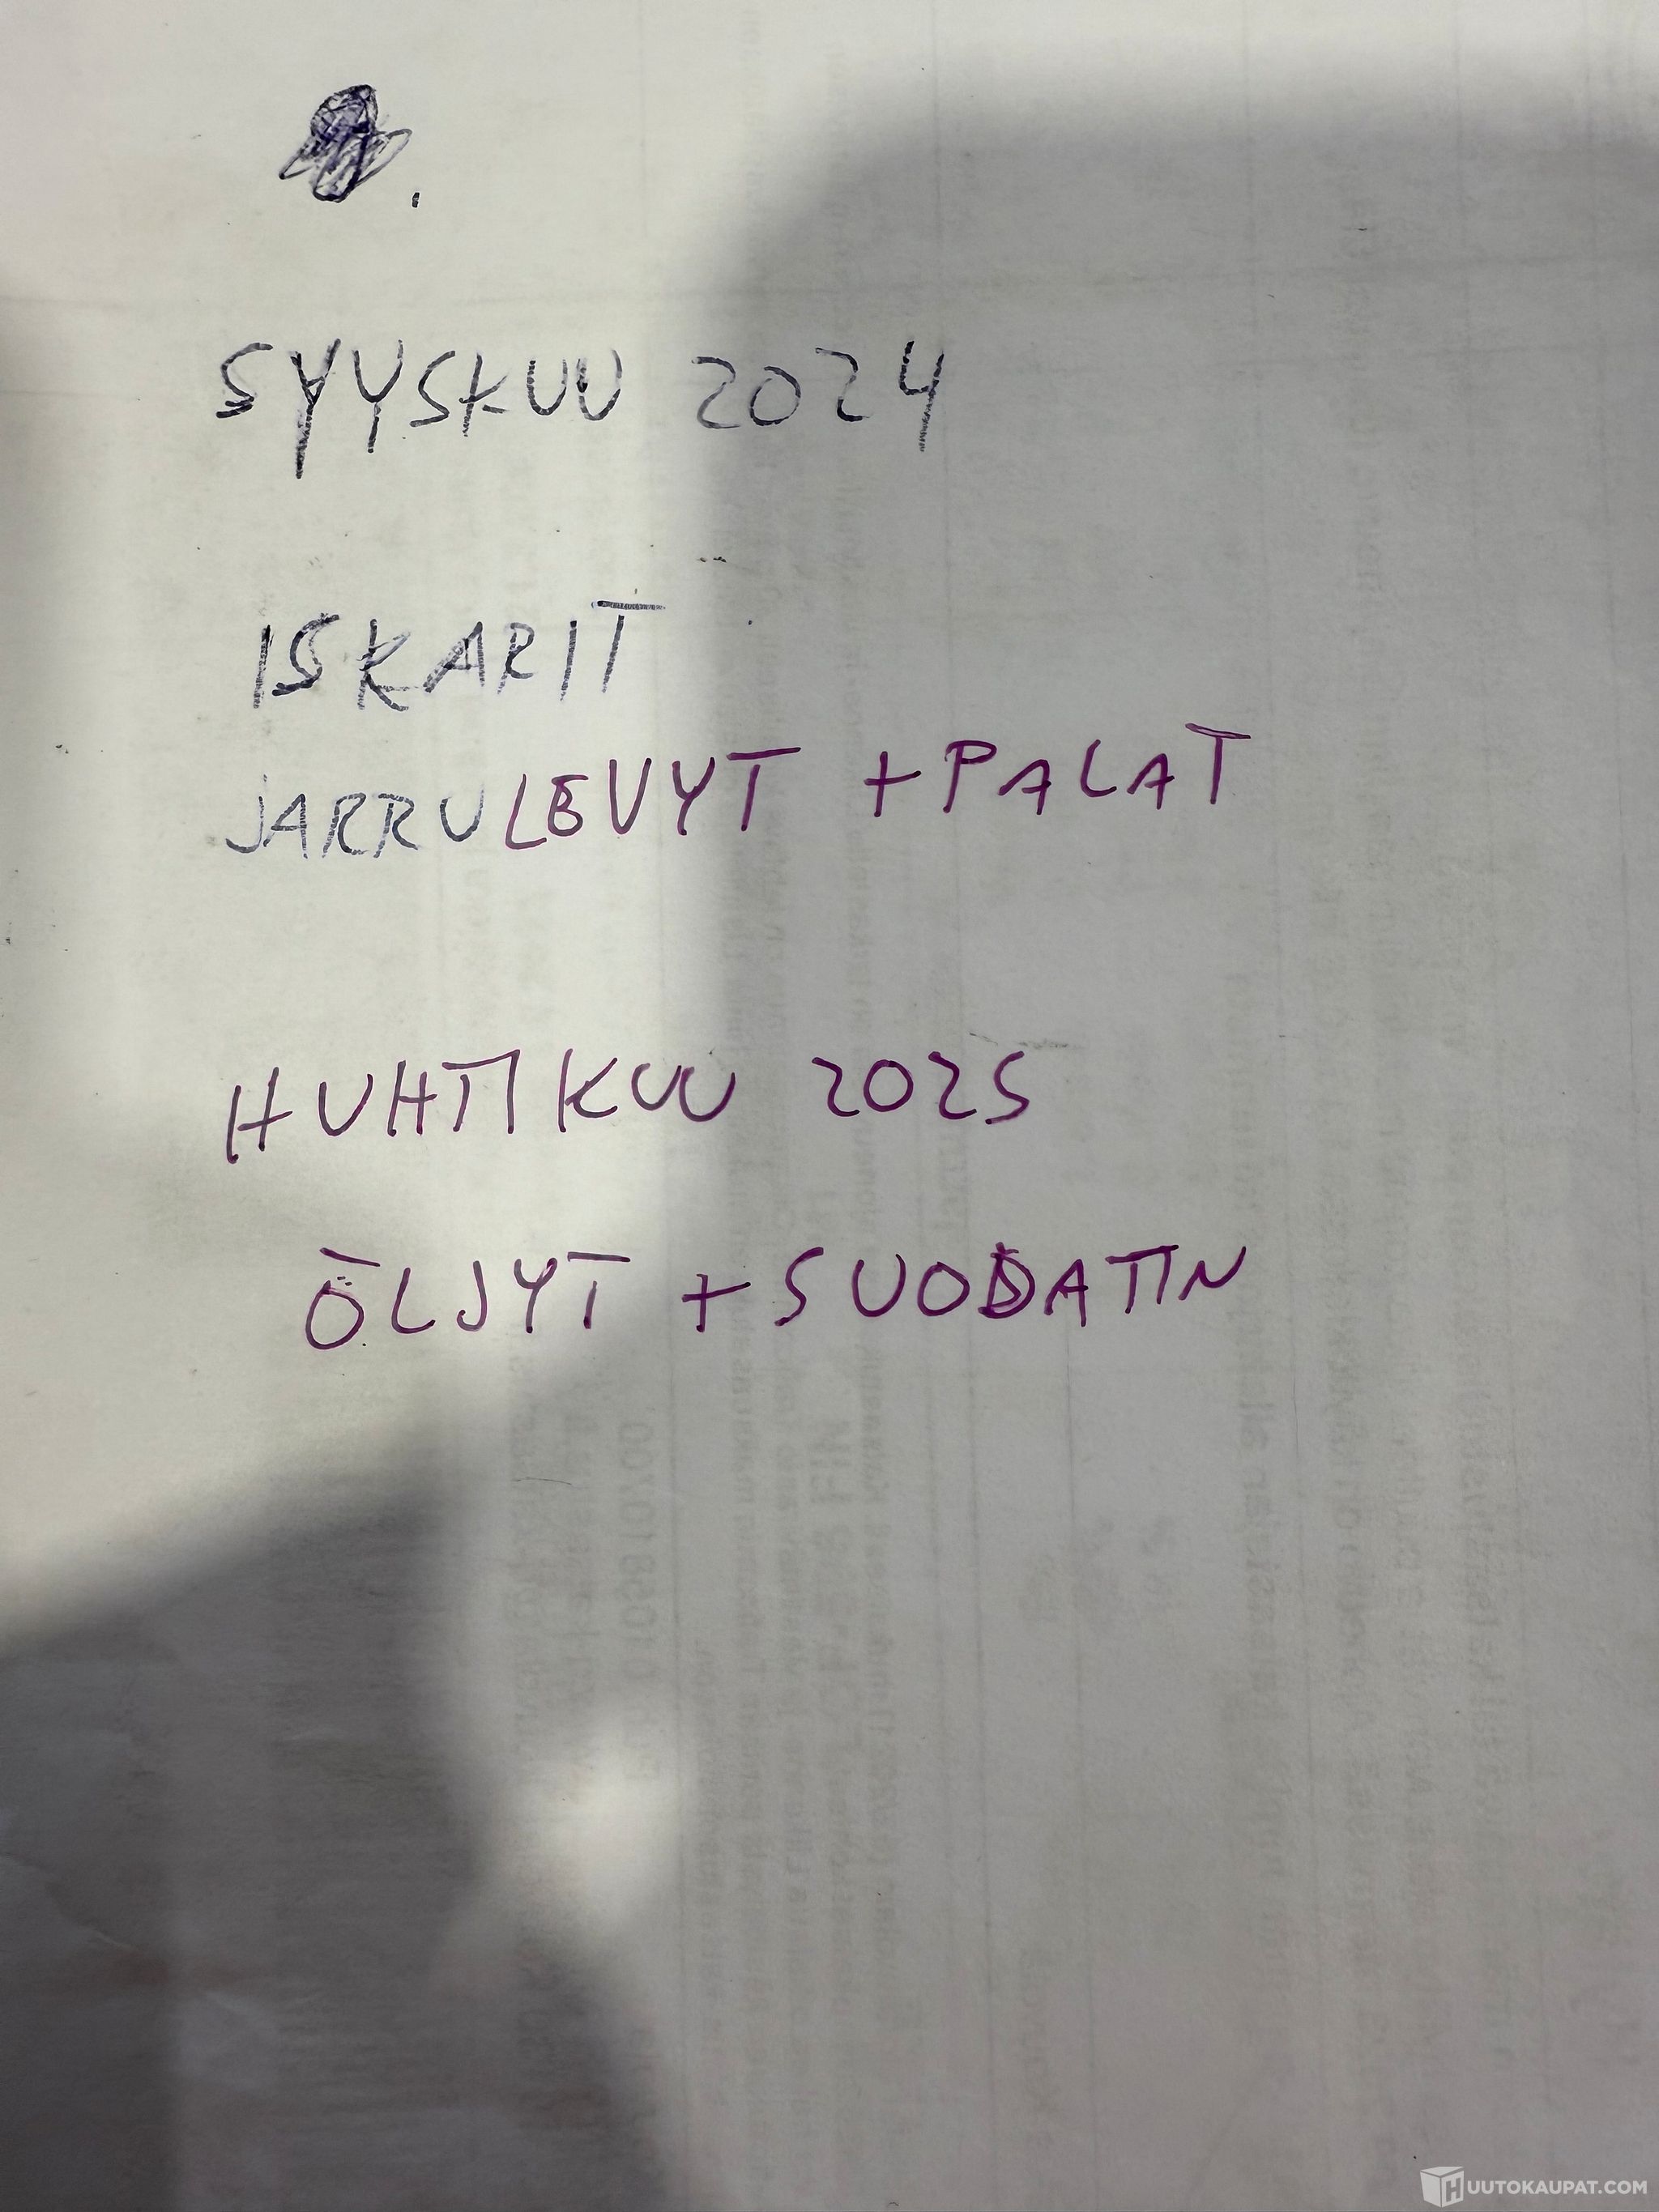 SYYSKUU 2024
ISKARIT
JARRULEVYT + PALAT
HUHTIKUU 2025
ÖLJYT + SUODATIN
HUUTOKAUPAT.COM